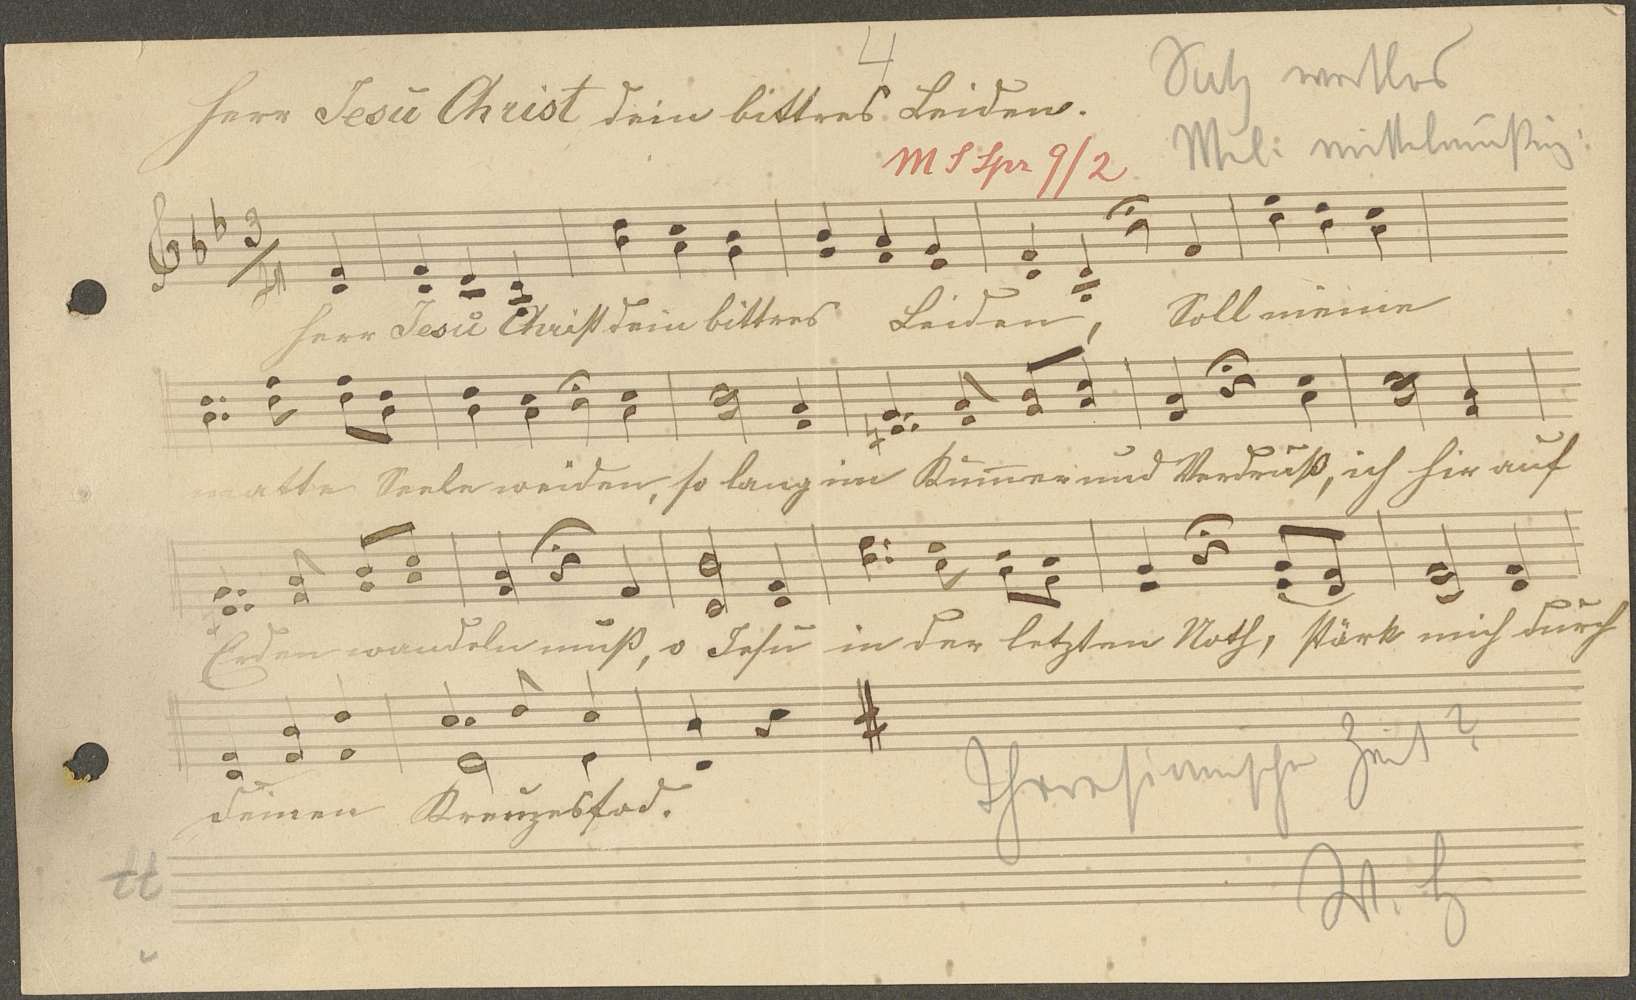 4
Satz wertlos
Herr Jesū Christ dein bittres Leiden.
Mel: mittelmäßig!
M S Spr 9/2
3/4
Herr Jesū Christ dein bittres Leiden, Soll meine
matte Seele weiden, so lang im Kum̄er und Verdruß, ich hir auf
Erden wandeln muß, o Jesu in der letzten Noth, stärk mich durch
deinen Kreuzestod.
Theresianische Zeit?
tt